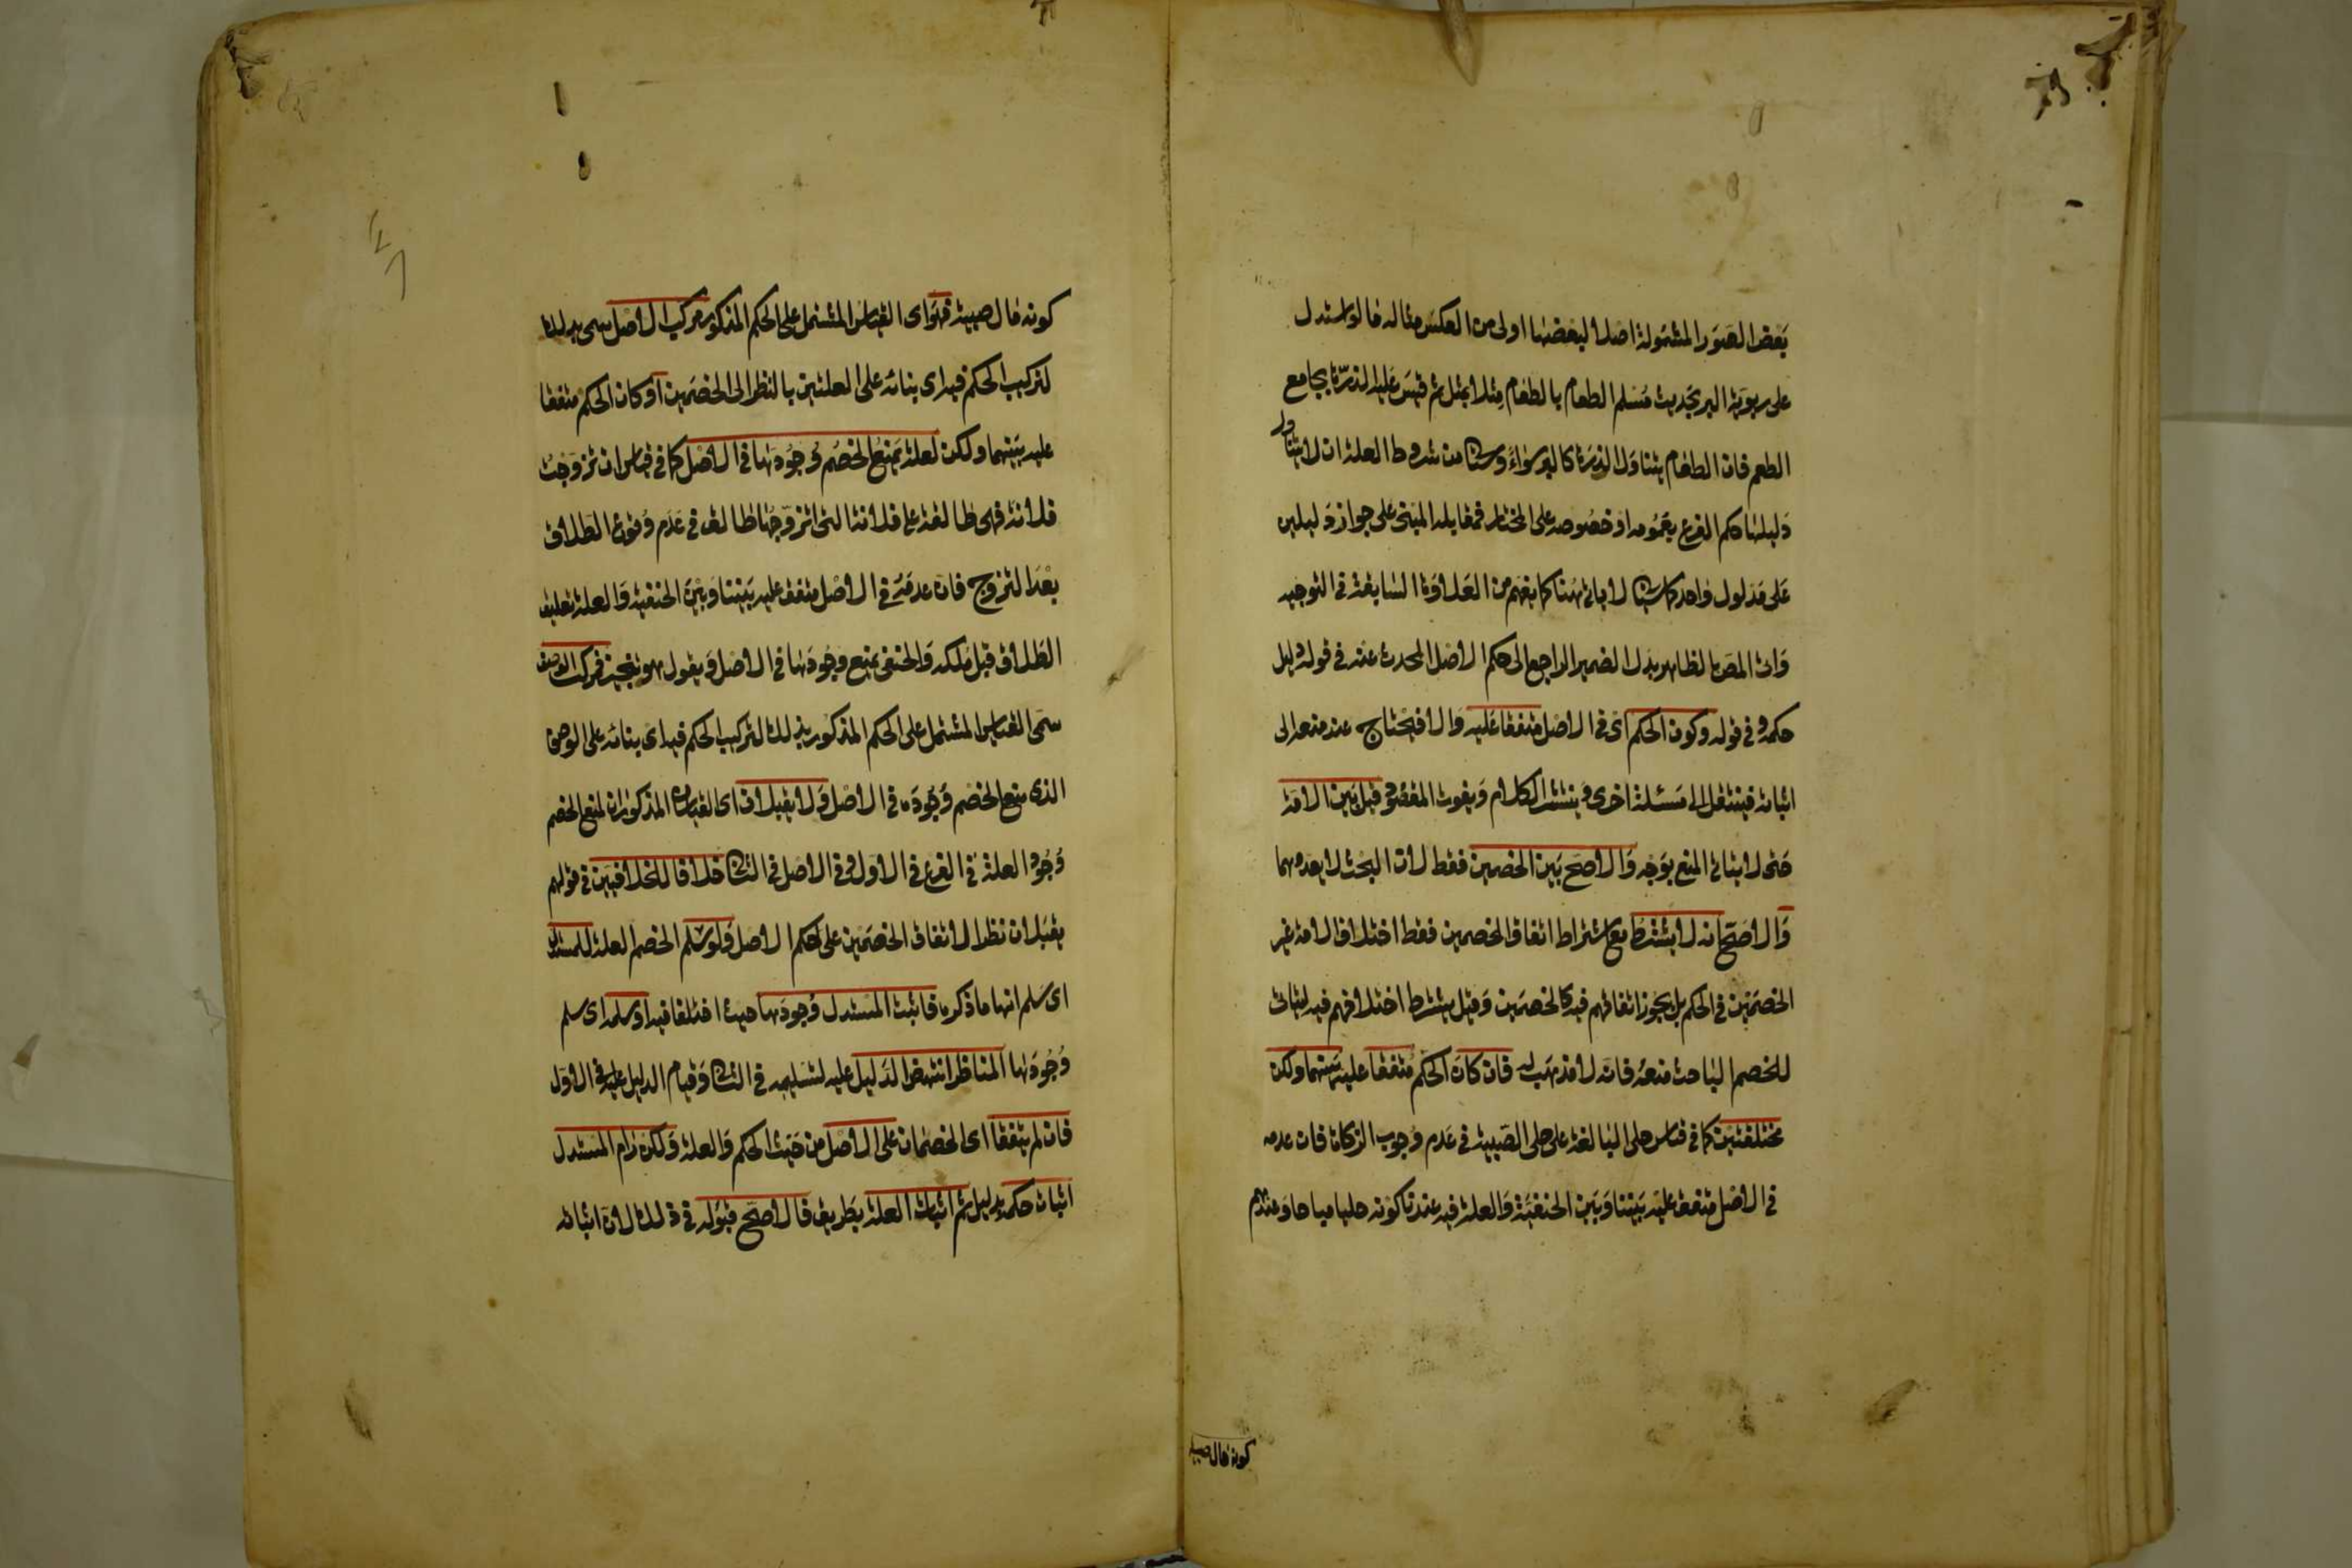 بعض الصور المشمولة اصلا لبعضها اولى من العكس مثاله ما لو استدل
على ربوية البر بحديث مسلم الطعام بالطعام مثلا بمثل ثم قيس عليه الذرة بجامع
الطعم فان الطعام يتناول الذرة كالبر سواء وسيأتي من شروط العلة ان لا يتناول
دليلها حكم الفرع بعمومه او خصوصه على المختار فمقابله المبني على جواز دليلين
على مدلول واحد كما سيأتي لا يأتي هنا كما يفهم من العلاوة السابقة في التوجيه
وأتى المص بالظاهر بدل الضمير الراجع الى حكم الاصل المحدث عنه في قوله دليل
حكمه وفي قوله وكون الحكم اى في الاصل متفقا عليه والا فيحتاج عند منعه الى
اثباته فينتقل الى مسئلة اخرى وينتشر الكلام ويفوت المقصود قيل بين الامة
حتى لا يتأتى المنع بوجه والاصح بين الخصمين فقط لان البحث لا يعدوهما
والاصح انه لا يشترط مع اشتراط اتفاق الخصمين فقط اختلاف الامة غير
الخصمين في الحكم بل يجوز اتفاقهم فيه كالخصمين وقيل يشترط اختلافهم فيه ليتأتى
للخصم الباحث منعه فانه لا مذهب له فان كان الحكم متفقا عليه بينهما ولكن
مختلفتين كما في قياس حلى البالغة على حلى الصبية في عدم وجوب الزكاة فان عدمه
في الاصل متفق عليه بيننا وبين الحنفية والعلة فيه عندنا كونه حليا مباحا وعندهم
كونه مال صبية
كونه مال صبية فهو اى القياس المشتمل على الحكم المذكور مركب الاصل سمى بذلك
لتركيب الحكم فيه اى بنائه على العلتين بالنظر الى الخصمين او كان الحكم متفقا
عليه بينهما ولكن لعلة يمنع الخصم وجودها في الاصل كما في قياس ان تزوجت
فلانة فهى طالق على فلانة التى اتزوجها طالق في عدم وقوع الطلاق
بعد التزوج فان عدمه في الاصل متفق عليه بيننا وبين الحنفية والعلة تعليق
الطلاق قبل ملكه والحنفى يمنع وجودها في الاصل ويقول هو تنجيز فمركب الوصف
سمى القياس المشتمل على الحكم المذكور بذلك لتركيب الحكم فيه اى بنائه على الوصف
الذى منع الخصم وجوده في الاصل ولا يقبلان اى القياسان المذكوران لمنع الخصم
وجود العلة في الفرع في الاول وفي الاصل في الثاني خلافا للخلافيين في قولهم
يقبلان نظرا لاتفاق الخصمين على حكم الاصل ولو سلم الخصم العلة للمستدل
اى سلم انها ما ذكره فاثبت المستدل وجودها حيث اختلفا فيه او سلمه اى سلم
وجودها المناظر انتهض الدليل عليه لتسليمه في الثاني وقيام الدليل عليه في الاول
فان لم يتفقا اى الخصمان على الاصل من حيث الحكم والعلة ولكن رام المستدل
اثبات حكمه بدليل ثم اثبات العلة بطريق فالاصح قبوله في ذلك لان اثباته